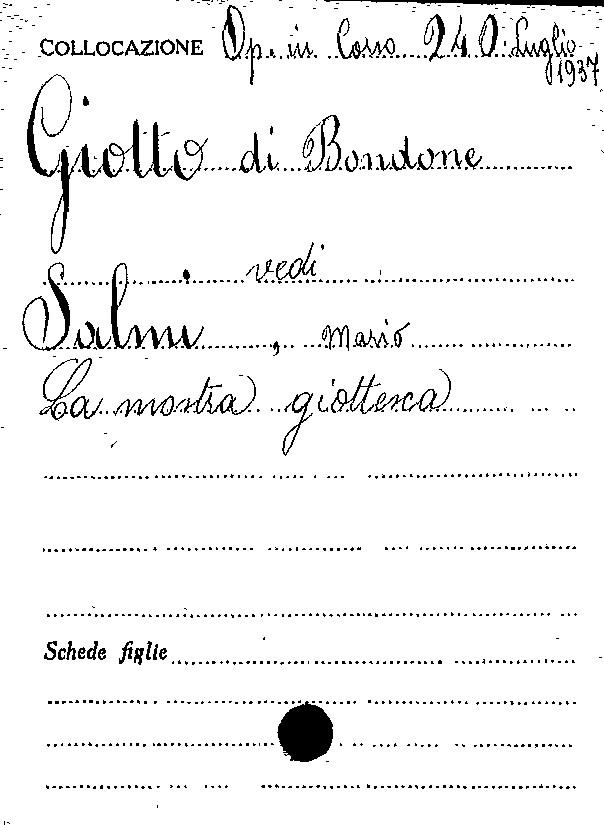 COLLOCAZIONE Op. in Corso 240 Luglio
1937
Giotto di Bondone
vedi
Salmi, Mario
La mostra giottesca
Schede figlie